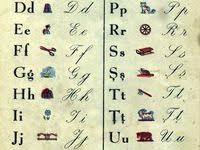 Dd Dd
Ee Ee
Ff Ff
Gg Gg
Hh Hh
Ii Ii
Jj Jj
Pp Pp
Rr Rr
Ss Ss
Șș Șș
Tt Tt
Țț Țț
Uu Uu